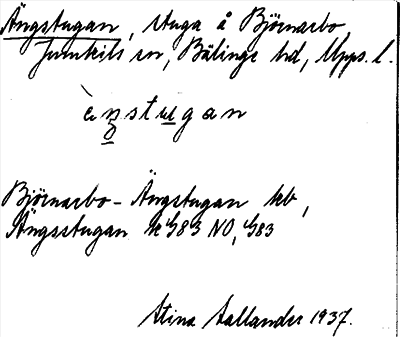 Ängstugan, stuga å Björnarbo
Jumkils sn, Bälinge hd, Upps. l.
èŋstugan
Björnarbo-Ängstugan kb,
Ängsstugan k G83 NO, G83
Stina Aallander 1937.